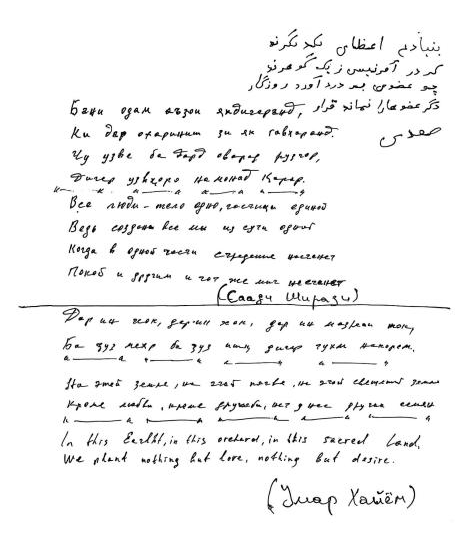 بنیادم اعظای یکدیگرند
که در آفرنیس زیک گوهرند
چو عضوی بدردآورد روزگار
دگر عضوها را نماند قرار
سعدی
Бани одам аъзои якдигаранд,
Ки дар офариниш зи як гавҳаранд.
Чу узве ба дард оварад рузгор,
Дигар узвҳоро намонад Қарор.
Все люди - тело одно, частицы единой
Ведь созданы все мы из сути одной
Когда в одной части страдание настанет
Покоя и другим в тот же миг не станет
(Саади Ширази)
Дар ин хок, дар ин хок, дар ин мазраи пок,
Ба ҷуз меҳр ба ҷуз ишқ дигар тухм накорем.
На этой земле, на этой почве, на этой священной земле
Кроме любви, кроме дружбы, нет у нас других семян
In this Earth, in this orchard, in this sacred Land,
We plant nothing but love, nothing but desire.
(Умар Хайём)